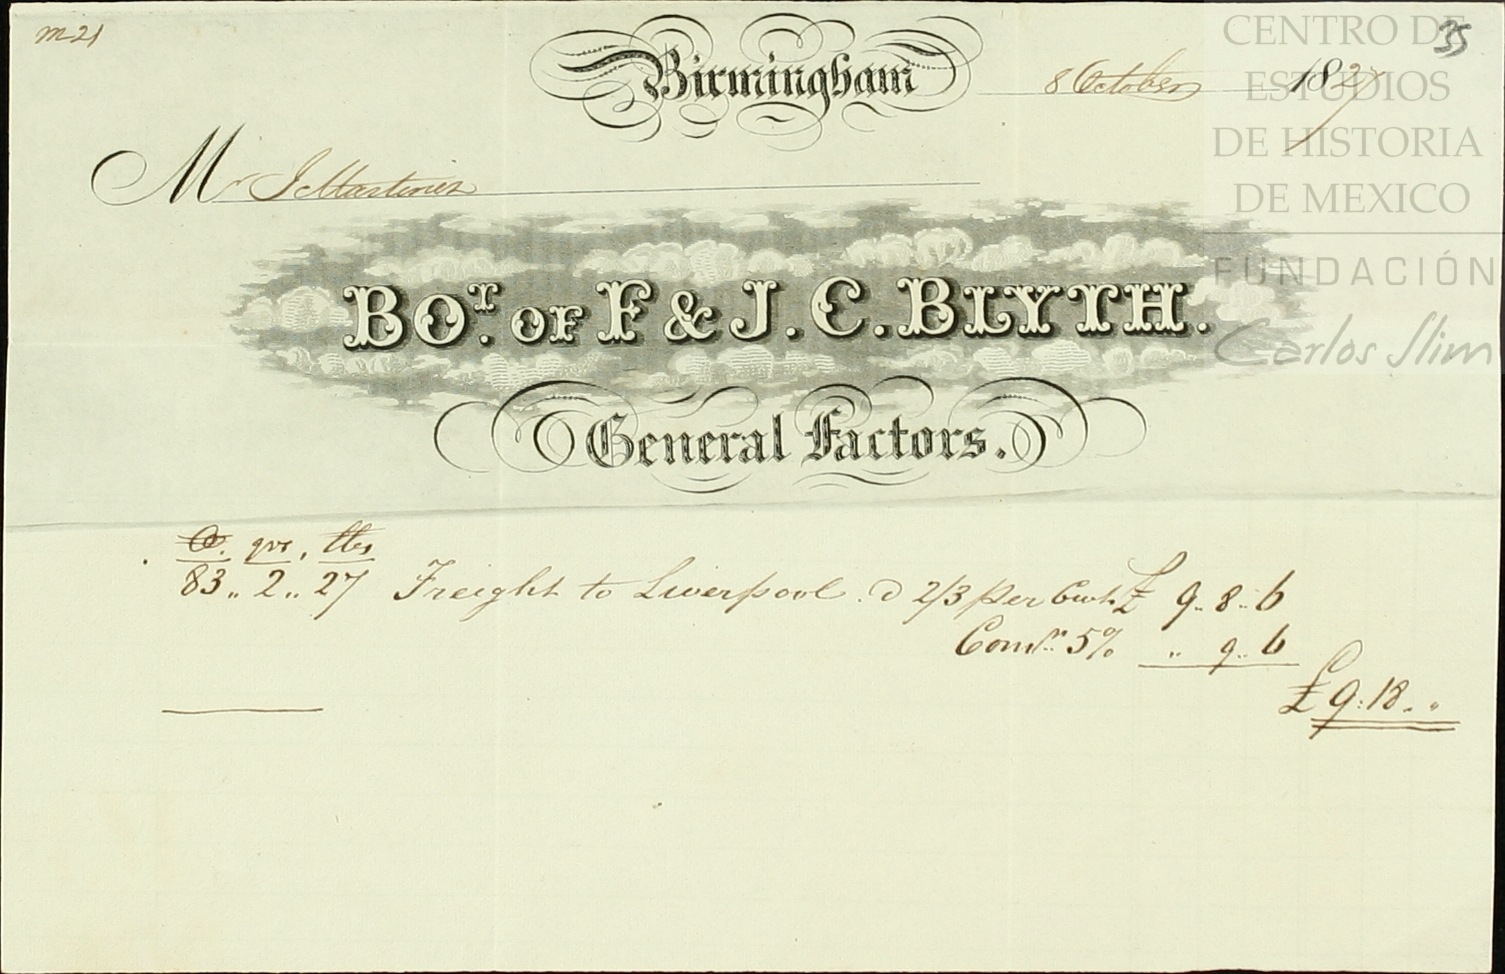 m 21
35
Birmingham 8 October 1827
Mr J Martinez
BOT. OF F & J. C. BLYTH.
General Factors.
C. qrs, lbs
83 .. 2 .. 27 Freight to Liverpool @ 2/3 per Cwt £ 9 .. 8 .. 6
Comsn. 5% " 9 .. 6
£ 9 : 18 .. "
CENTRO DE
ESTUDIOS
DE HISTORIA
DE MEXICO
FUNDACIÓN
Carlos Slim